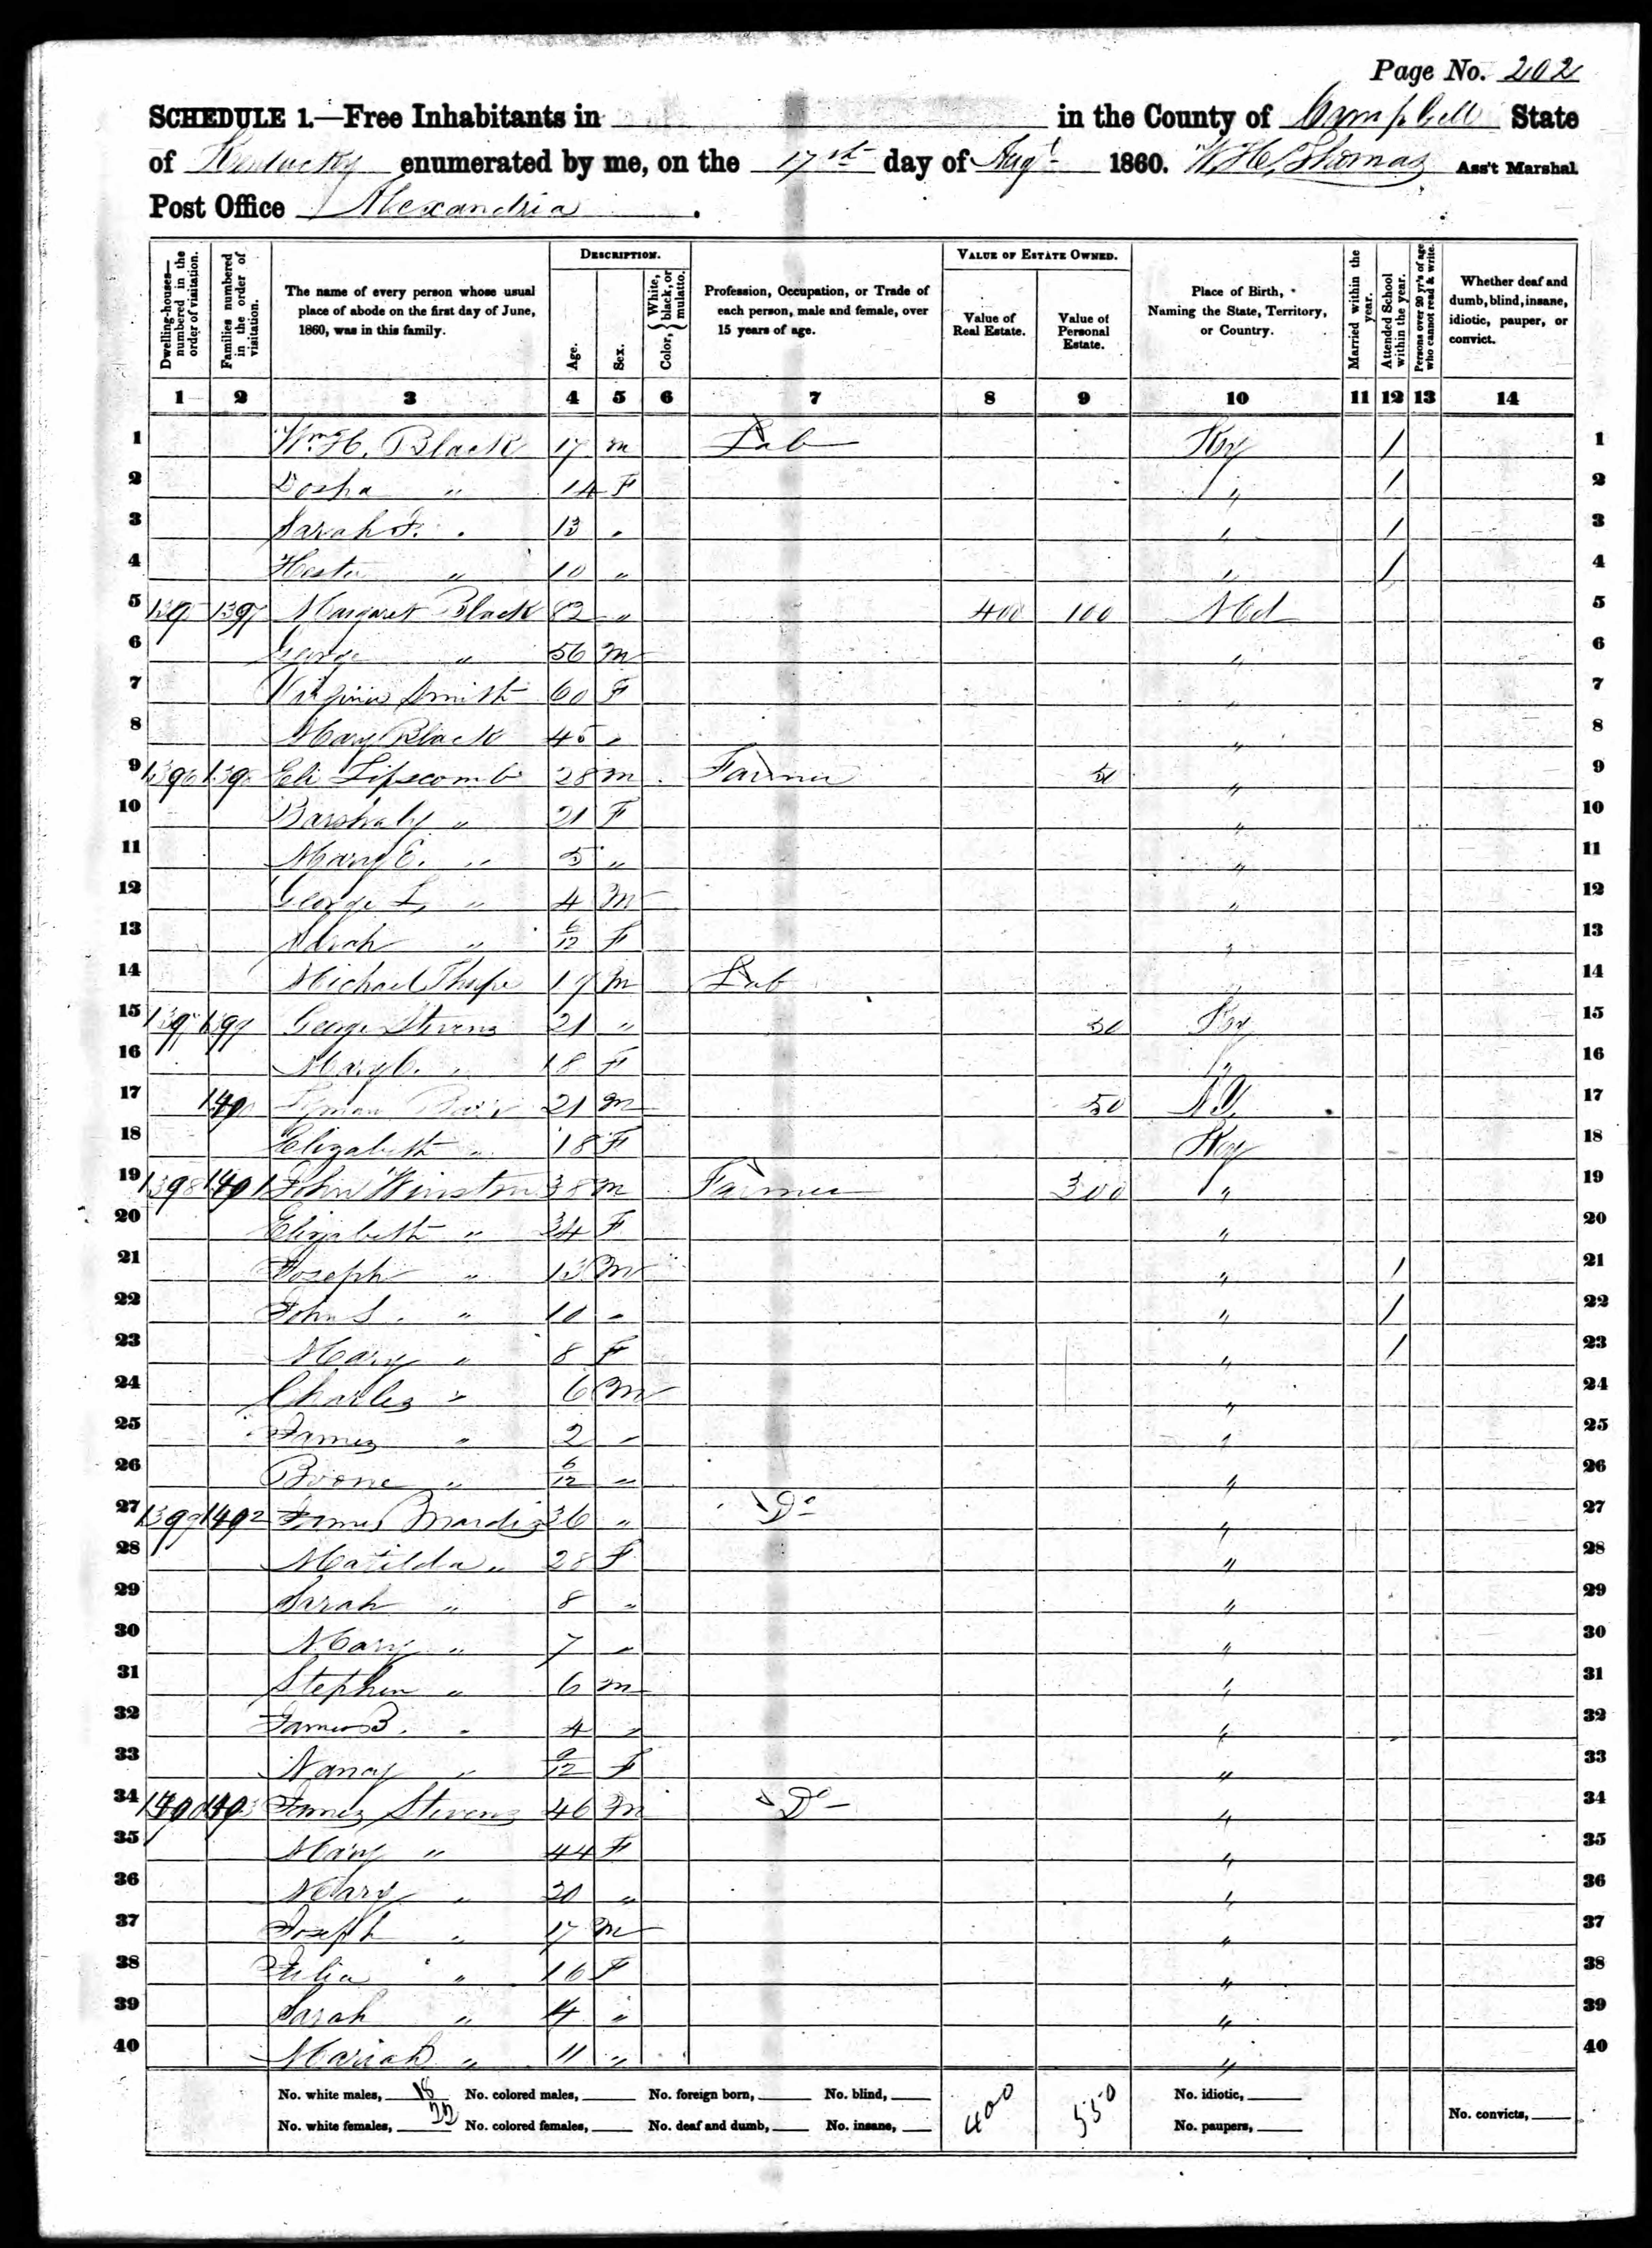 Page No. 202
SCHEDULE 1.—Free Inhabitants in in the County of Campbell State
of Kentucky enumerated by me, on the 17th day of Augt 1860. W. H. Thomas Ass't Marshal.
Post Office Alexandria .
Dwelling-houses—numbered in the order of visitation.
Families numbered in the order of visitation.
The name of every person whose usual place of abode on the first day of June, 1860, was in this family.
DESCRIPTION.
Age.
Sex.
Color, { White, black, or mulatto.
Profession, Occupation, or Trade of each person, male and female, over 15 years of age.
VALUE OF ESTATE OWNED.
Value of Real Estate.
Value of Personal Estate.
Place of Birth, Naming the State, Territory, or Country.
Married within the year.
Attended School within the year.
Persons over 20 y'rs of age who cannot read & write.
Whether deaf and dumb, blind, insane, idiotic, pauper, or convict.
1 2 3 4 5 6 7 8 9 10 11 12 13 14
1 Wm. H. Black 17 m Lab Ky / 1
2 Dosha " 14 F " / 2
3 Sarah F. " 13 " " / 3
4 Hester " 10 " " / 4
5 1397 Margaret Black 82 " 400 100 Md 5
6 George " 56 m " 6
7 Virginia Smith 60 F " 7
8 Mary Black 45 " " 8
9 1396 Eli Lipscomb 28 m Farmer 50 " 9
10 Barshaby " 21 F " 10
11 Mary E. " 5 " " 11
12 George L. " 4 m " 12
13 " 6/12 F " 13
14 Michael 19 m Lab " 14
15 1397 1399 George Stevens 21 " 50 Ky 15
16 Mary C. " 18 F " 16
17 1400 21 m 50 17
18 Elizabeth " 18 F Ky 18
19 1398 1401 John Winston 38 m Farmer 300 " 19
20 Elizabeth " 34 F " 20
21 Joseph " 13 m " / 21
22 John S. " 10 " " / 22
23 Mary " 8 F " / 23
24 Charles " 6 m " 24
25 James " 2 " " 25
26 Boone " 6/12 " " 26
27 1399 1402 James Mardis 36 " Do " 27
28 Matilda " 28 F " 28
29 Sarah " 8 " " 29
30 Mary " 7 " " 30
31 Stephen " 6 m " 31
32 James B. " 4 " " 32
33 Nancy " 9/12 F " 33
34 1400 1403 James Stevens 46 m Do " 34
35 Mary " 44 F " 35
36 Mary " 20 " " 36
37 Joseph " 17 m " 37
38 Julia " 16 F " 38
39 Sarah " 14 " " 39
40 Mariah " 11 " " 40
No. white males, 18 No. colored males, No. foreign born, No. blind, 400 550 No. idiotic,
No. white females, 22 No. colored females, No. deaf and dumb, No. insane, No. paupers, No. convicts,